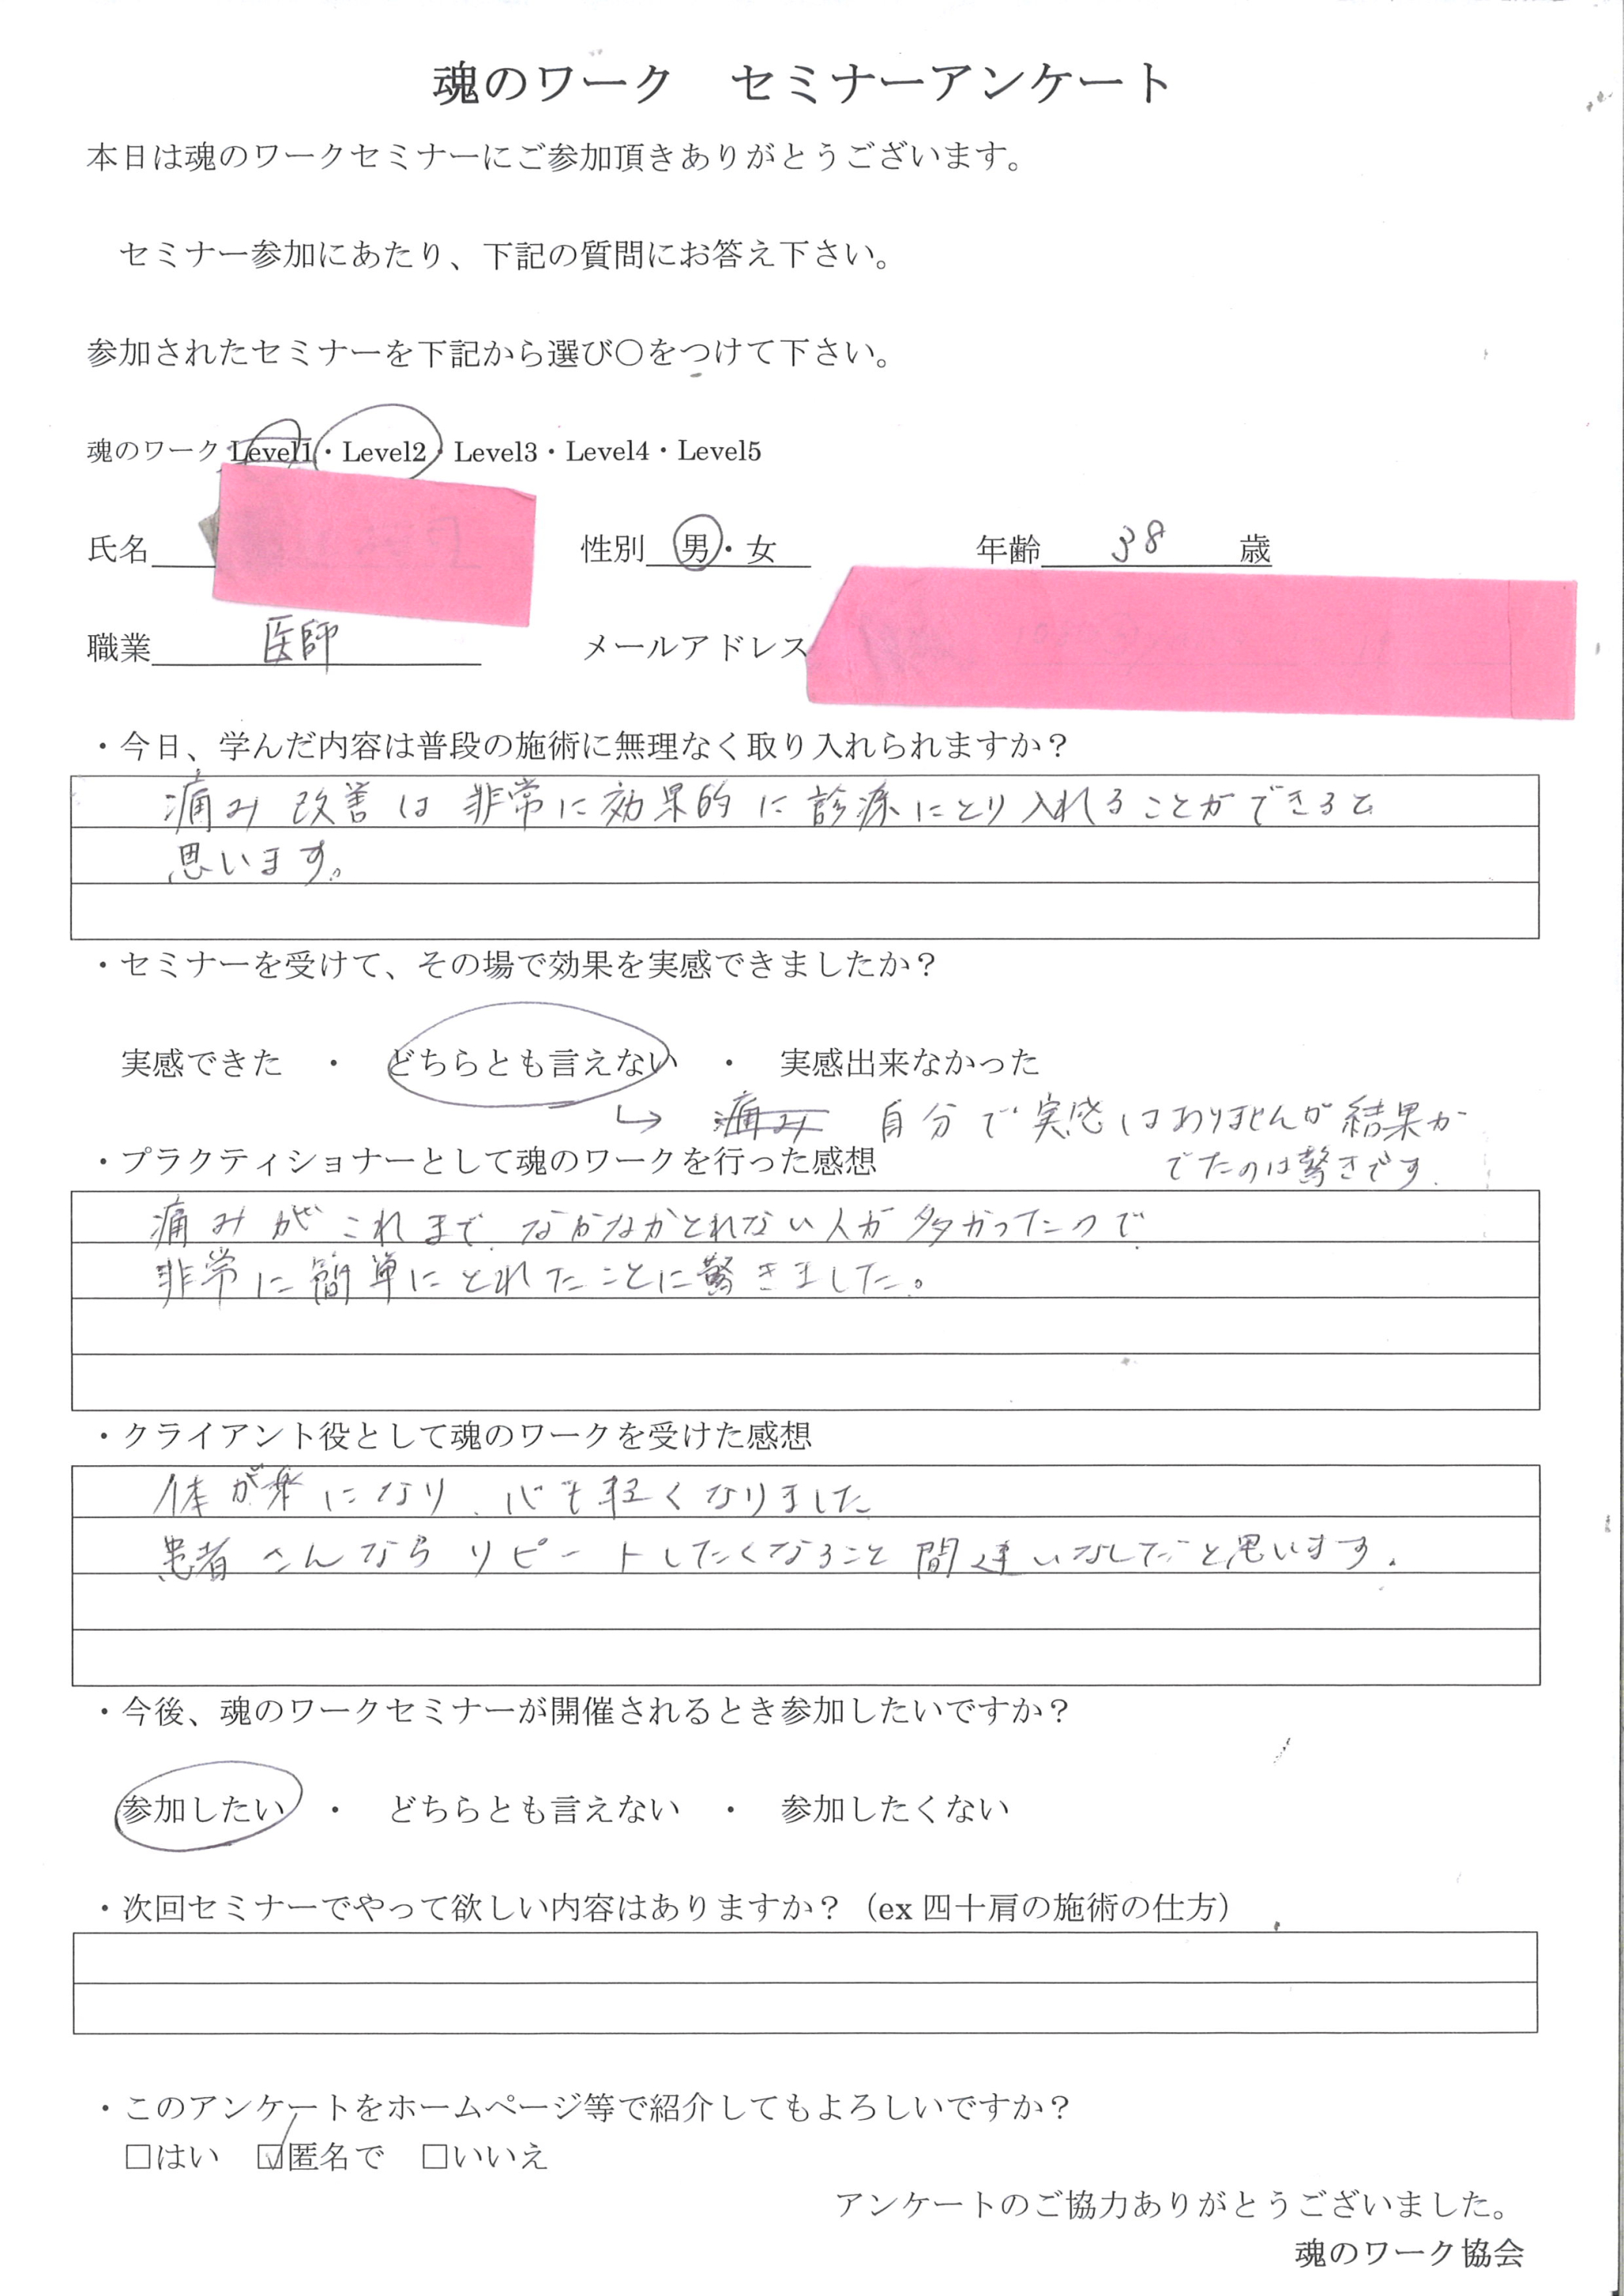 魂のワーク　セミナーアンケート
本日は魂のワークセミナーにご参加頂きありがとうございます。
セミナー参加にあたり、下記の質問にお答え下さい。
参加されたセミナーを下記から選び〇をつけて下さい。
魂のワーク Level1・Level2・Level3・Level4・Level5
氏名　性別　男・女　年齢　38　歳
職業　医師　メールアドレス
・今日、学んだ内容は普段の施術に無理なく取り入れられますか？
痛み改善は非常に効果的に診療にとり入れることができると
思います。
・セミナーを受けて、その場で効果を実感できましたか？
実感できた　・　どちらとも言えない　・　実感出来なかった
↳ 痛み 自分で実感はありませんが結果が
・プラクティショナーとして魂のワークを行った感想
でたのは驚きです.
痛みがこれまで、なかなかとれない人が多かったので
非常に簡単にとれたことに驚きました。
・クライアント役として魂のワークを受けた感想
体が楽になり、心も軽くなりました
患者さんならリピートしたくなること間違いなしだと思います.
・今後、魂のワークセミナーが開催されるとき参加したいですか？
参加したい　・　どちらとも言えない　・　参加したくない
・次回セミナーでやって欲しい内容はありますか？（ex 四十肩の施術の仕方）
・このアンケートをホームページ等で紹介してもよろしいですか？
□はい　☑匿名で　□いいえ
アンケートのご協力ありがとうございました。
魂のワーク協会